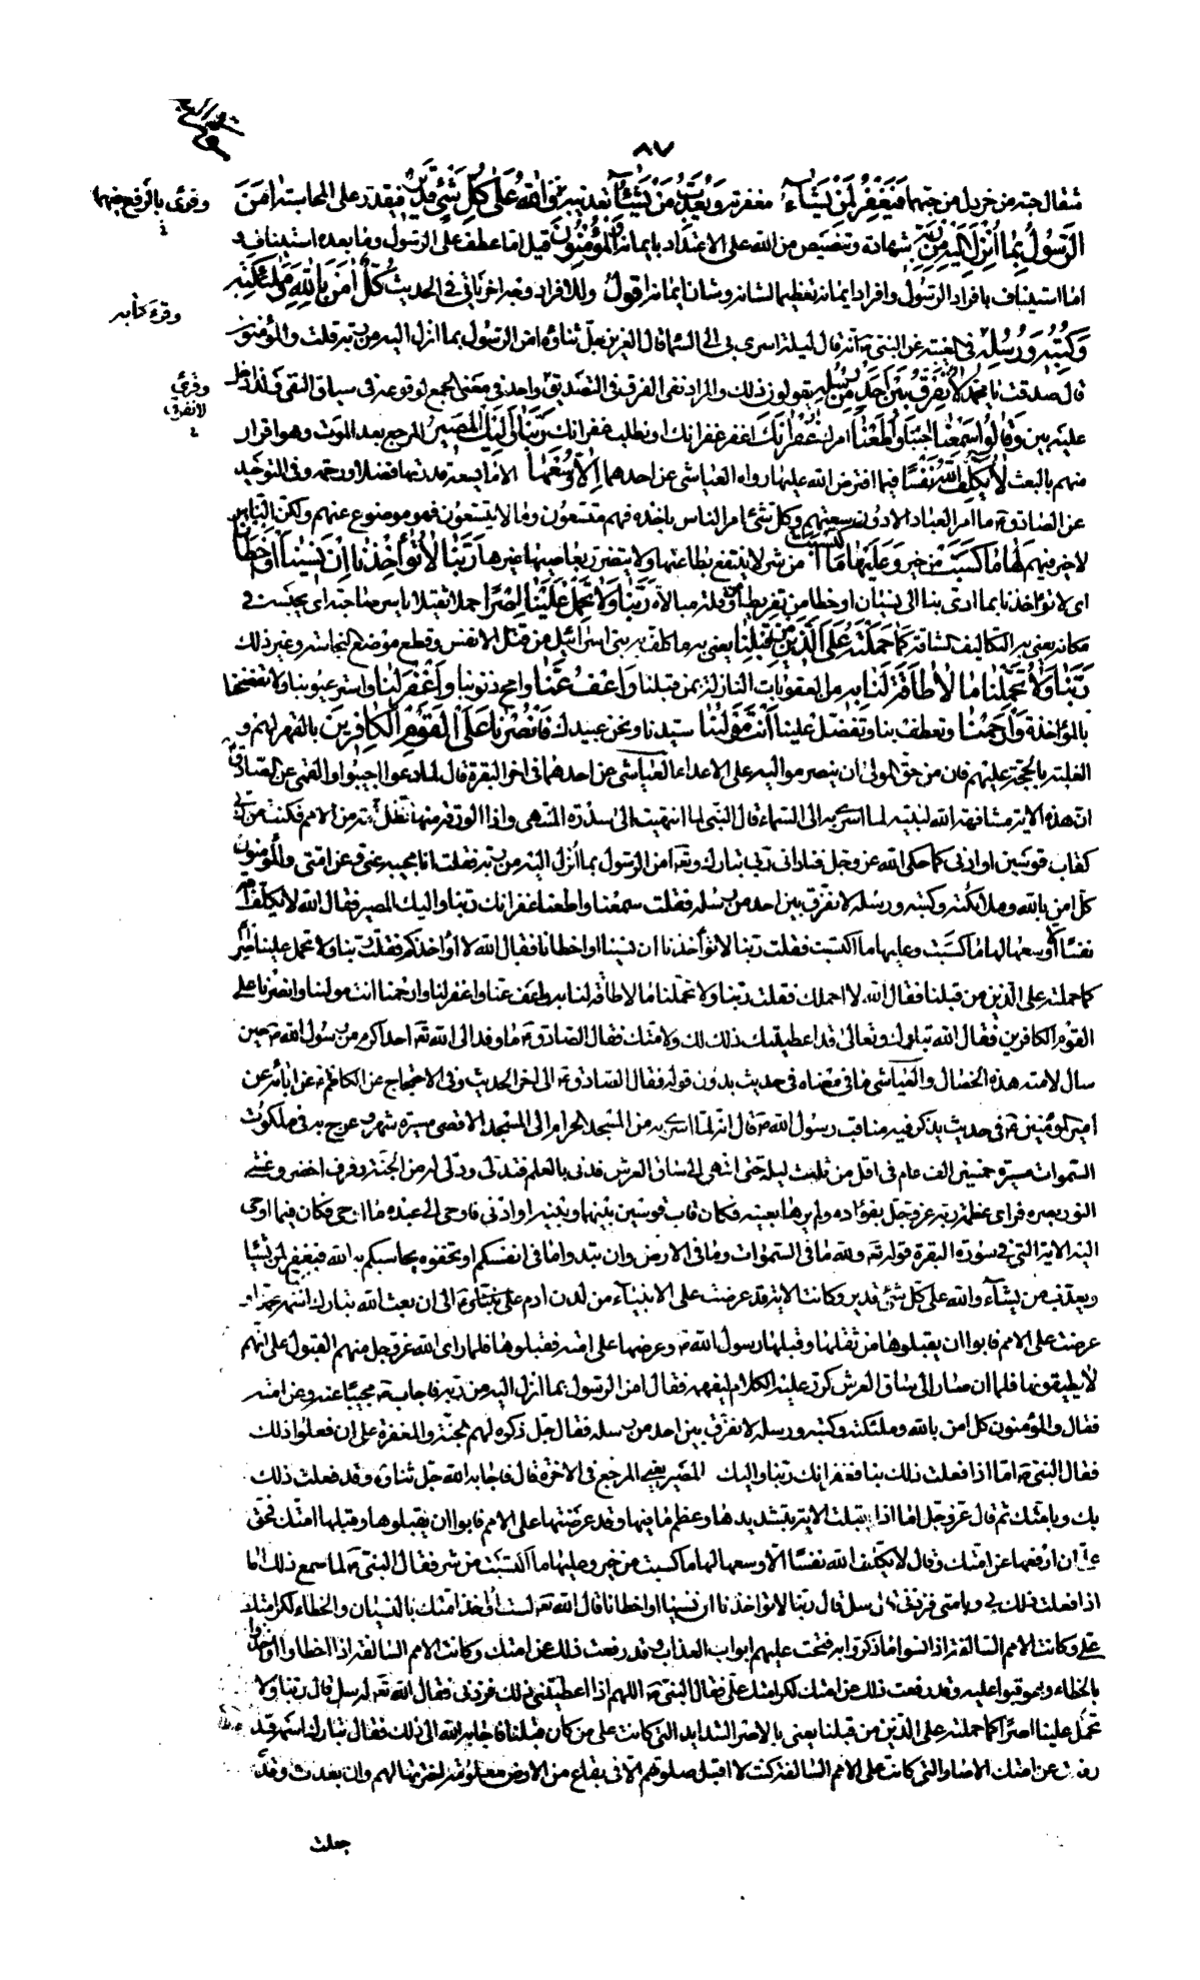 ٨٧
مثقال حبة من خردل من حبهما فَيَغْفِرُ لِمَنْ يَشَآءُ مغفرته وَيُعَذِّبُ مَنْ يَشَآءُ تعذيبه وَاللهُ عَلٰى كُلِّ شَيْءٍ قَدِيرٌ فيقدر على المحاسبة اٰمَنَ
وقرئ بالرفع فيهما
الرَّسُولُ بِمَا اُنْزِلَ اِلَيْهِ مِنْ رَبِّهِ شهادة وتنصيص من الله على الاعتداد بايمانه وَالْمُؤْمِنُونَ قيل اما عطف على الرسول وما بعده استيناف و
اما استيناف بافراد الرسول وافراد ايمانه تعظيما لشانه وشان ايمانه اقول وللافراد وجه اخر ياتي في الحديث كُلٌّ اٰمَنَ بِاللهِ وَمَلٰئِكَتِهِ
وقرء كتابه
وَكُتُبِهِ وَرُسُلِهِ في الغيبة عن النبي ص انه قال ليلة اسري بي الى السماء قال العزيز جل ثناؤه امن الرسول بما انزل اليه من ربه قلت والمؤمنون
قال صدقت يا محمد لَا نُفَرِّقُ بَيْنَ اَحَدٍ مِنْ رُسُلِهِ يقولون ذلك والمراد نفي الفرق في التصديق واحد في معنى الجمع لوقوعه في سياق النفي فلذا دخل
وقرئ لا يفرق
عليه بين وَقَالُوا سَمِعْنَا اجبنا وَاَطَعْنَا امرك غُفْرَانَكَ اغفر غفرانك او نطلب غفرانك رَبَّنَا وَاِلَيْكَ الْمَصِيرُ المرجع بعد الموت وهو اقرار
منهم بالبعث لَا يُكَلِّفُ اللهُ نَفْسًا فيما افترض الله عليها رواه العياشي عن احدهما اِلَّا وُسْعَهَا الا ما يسعه قدرتها فضلا ورحمة وفي التوحيد
عن الصادق ع ما امر العباد الا دون سعتهم وكل شئ امر الناس باخذه فهم متسعون وما لا يتسعون فهو موضوع عنهم ولكن الناس
لا خير فيهم لَهَا مَا كَسَبَتْ من خير وَعَلَيْهَا مَا اكْتَسَبَتْ من شر لا ينتفع بطاعتها ولا يتضرر بمعاصيها غيرها رَبَّنَا لَا تُؤَاخِذْنَا اِنْ نَسِينَا اَوْ اَخْطَأْنَا
اي لا تؤاخذنا بما ادى بنا الى نسيان او خطا من تفريط او قلة مبالاة رَبَّنَا وَلَا تَحْمِلْ عَلَيْنَا اِصْرًا حملا ثقيلا ياصر صاحبه اي يحبسه في
مكانه يعني به التكاليف الشاقة كَمَا حَمَلْتَهُ عَلَى الَّذِينَ مِنْ قَبْلِنَا يعني به ما كلف به بني اسرائيل من قتل الانفس وقطع موضع النجاسة وغير ذلك
رَبَّنَا وَلَا تُحَمِّلْنَا مَا لَا طَاقَةَ لَنَا بِهِ من العقوبات النازلة بمن قبلنا وَاعْفُ عَنَّا وامح ذنوبنا وَاغْفِرْ لَنَا واستر عيوبنا ولا تفضحنا
بالمؤاخذة وَارْحَمْنَا وتعطف بنا وتفضل علينا اَنْتَ مَوْلٰنَا سيدنا ونحن عبيدك فَانْصُرْنَا عَلَى الْقَوْمِ الْكَافِرِينَ بالقهر لهم و
الغلبة بالحجة عليهم فان من حق المولى ان ينصر مواليه على الاعداء العياشي عن احدهما في اخر البقرة قال لما دعوا اجيبوا والقمي عن الصادق
ان هذه الاية مشافهة الله لنبيه لما اسري به الى السماء قال النبي لما انتهيت الى سدرة المنتهى واذا الورقة منها تظل امة من الامم فكنت من ربي
كقاب قوسين او ادنى كما حكى الله عز وجل فناداني ربي تبارك وتعه امن الرسول بما أنزل اليه من ربه فقلت انا مجيبه عني وعن امتي والمؤمنون
كل امن بالله وملائكته وكتبه ورسله لا نفرق بين احد من رسله فقلت سمعنا واطعنا غفرانك ربنا واليك المصير فقال الله لا يكلف الله
نفسًا الا وسعها لها ما كسبت وعليها ما اكتسبت فقلت ربنا لا تؤاخذنا ان نسينا او اخطانا فقال الله لا أؤاخذك فقلت ربنا ولا تحمل علينا اصرا
كما حملته على الذين من قبلنا فقال الله لا احملك فقلت ربنا ولا تحملنا ما لا طاقة لنا به واعف عنا واغفر لنا وارحمنا انت مولينا وانصرنا على
القوم الكافرين فقال الله تبارك وتعالى قد اعطيتك ذلك لك ولامتك فقال الصادق ع ما وفد الى الله تعه احد اكرم من رسول الله ص حين
سال لامته هذه الخصال والعياشي ما في معناه في حديث بدون قوله فقال الصادق ع الى اخر الحديث وفي الاحتجاج عن الكاظم ع عن ابائه عن
امير المؤمنين ع في حديث يذكر فيه مناقب رسول الله ص قال انه لما اسري به من المسجد الحرام الى المسجد الاقصى مسيرة شهر وعرج به في ملكوت
السموات مسيرة خمسين الف عام في اقل من ثلث ليلة حتى انتهى الى ساق العرش فدنى بالعلم فتدلى ودلى له من الجنة رفرف اخضر وغشى
النور بصره فراى عظمة ربه عز وجل بفؤاده ولم يرها بعينه فكان قاب قوسين بينها وبينه او ادنى فاوحى الى عبده ما اوحى فكان فيما اوحى
اليه الاية التي في سورة البقرة قوله تعه ولله ما في السموات وما في الارض وان تبدوا ما في انفسكم او تخفوه يحاسبكم به الله فيغفر لمن يشاء
ويعذب من يشآء والله على كل شئ قدير وكانت الاية قد عرضت على الانبياء من لدن ادم على نبينا وع الى ان بعث الله تبارك اسمه محمدا و
عرضت على الامم فابوا ان يقبلوها من ثقلها وقبلها رسول الله ص وعرضها على امته فقبلوها فلما راى الله عز وجل منهم القبول على انهم
لا يطيقونها فلما ان صار الى ساق العرش كرر عليه الكلام ليفهمه فقال امن الرسول بما انزل اليه من ربه فاجاب ص مجيبًا عنه وعن امته
فقال والمؤمنون كل امن بالله وملئكته وكتبه ورسله لا نفرق بين احد من رسله فقال جل ذكره لهم الجنة والمغفرة على ان فعلوا ذلك
فقال النبي ص اما اذا فعلت ذلك بنا فغفرانك ربنا واليك المصير يعني المرجع في الاخرة قال فاجابه الله جل ثناؤه وقد فعلت ذلك
بك وبامتك ثم قال عز وجل اما اذا قبلت الاية بتشديدها وعظم ما فيها وقد عرضتها على الامم فابوا ان يقبلوها وقبلها امتك فحق
علي ان ارفعها عن امتك وقال لا يكلف الله نفسًا الا وسعها لها ما كسبت من خير وعليها ما اكتسبت من شر فقال النبي ص لما سمع ذلك اما
اذا فعلت ذلك بي وبامتي فزدني قال سل قال ربنا لا تؤاخذنا ان نسينا او اخطانا قال الله تعه لست أؤاخذ امتك بالنسيان والخطاء لكرامتك
علي وكانت الامم السالفة اذا نسوا ما ذكروا به فتحت عليهم ابواب العذاب وقد رفعت ذلك عن امتك وكانت الامم السالفة اذا اخطاوا اخذوا
بالخطاء وعوقبوا عليه وقد رفعت ذلك عن امتك لكرامتك علي فقال النبي ص اللهم اذا اعطيتني ذلك فزدني فقال الله تعه له سل قال ربنا ولا
تحمل علينا اصرًا كما حملته على الذين من قبلنا يعني بالاصر الشدايد التي كانت على من كان قبلنا فاجابه الله الى ذلك فقال تبارك اسمه قد
رفعت عن امتك الاصار التي كانت على الامم السالفة كنت لا اقبل صلوتهم الا في بقاع من الارض معلومة اخترتها لهم وان بعدت وقد
جعلت